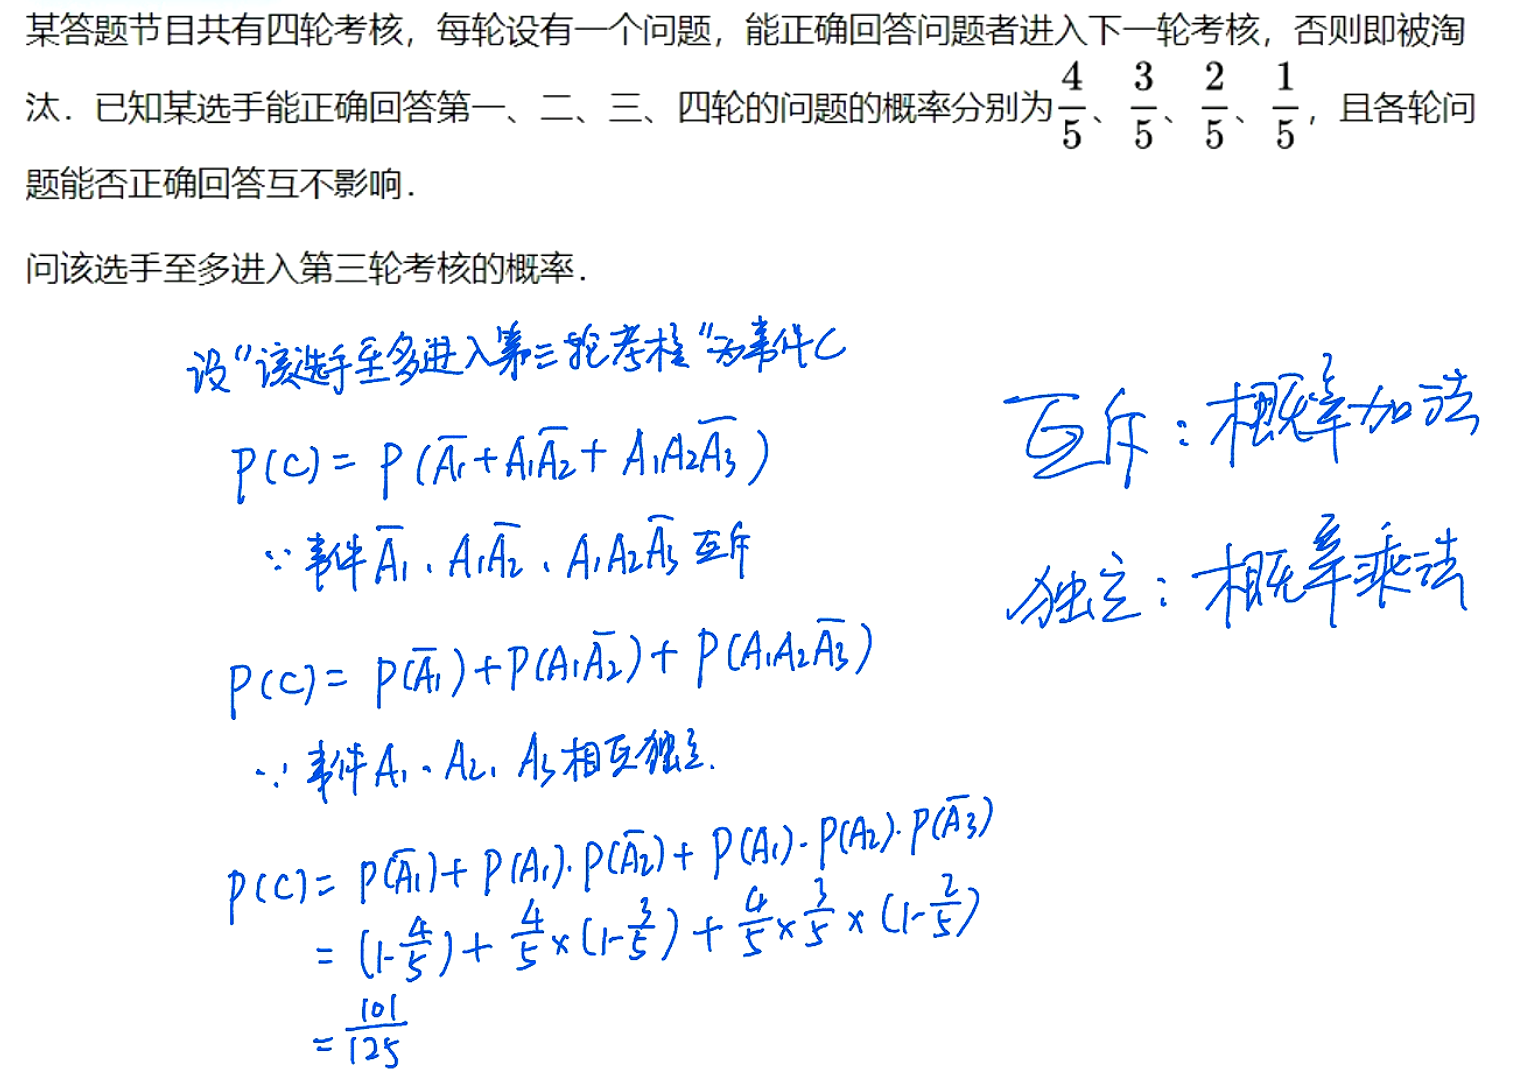 某答题节目共有四轮考核，每轮设有一个问题，能正确回答问题者进入下一轮考核，否则即被淘
汰．已知某选手能正确回答第一、二、三、四轮的问题的概率分别为4/5、3/5、2/5、1/5，且各轮问
题能否正确回答互不影响．
问该选手至多进入第三轮考核的概率．
设"该选手至多进入第三轮考核"为事件C
P(C)= P(A̅₁+A₁A̅₂+A₁A₂A̅₃)
∵事件A̅₁、A₁A̅₂、A₁A₂A̅₃互斥
P(C)= P(A̅₁)+P(A₁A̅₂)+P(A₁A₂A̅₃)
∵事件A₁、A₂、A₃相互独立.
P(C)= P(A̅₁)+P(A₁)·P(A̅₂)+P(A₁)·P(A₂)·P(A̅₃)
=(1-4/5)+4/5×(1-3/5)+4/5×3/5×(1-2/5)
=101/125
互斥：概率加法
独立：概率乘法